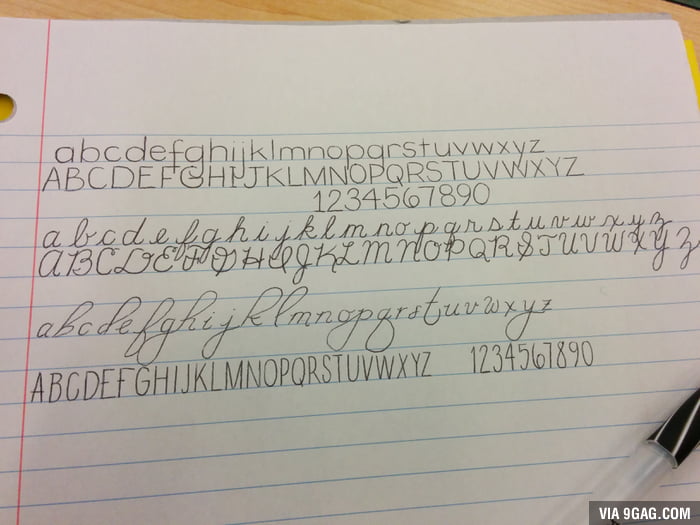 abcdefghijklmnopqrstuvwxyz
ABCDEFGHIJKLMNOPQRSTUVWXYZ
1234567890
abcdefghijklmnopqrstuvwxyz
ABCDEFGHIJKLMNOPQRSTUVWXYZ
abcdefghijklmnopqrstuvwxyz
ABCDEFGHIJKLMNOPQRSTUVWXYZ 1234567890
VIA 9GAG.COM